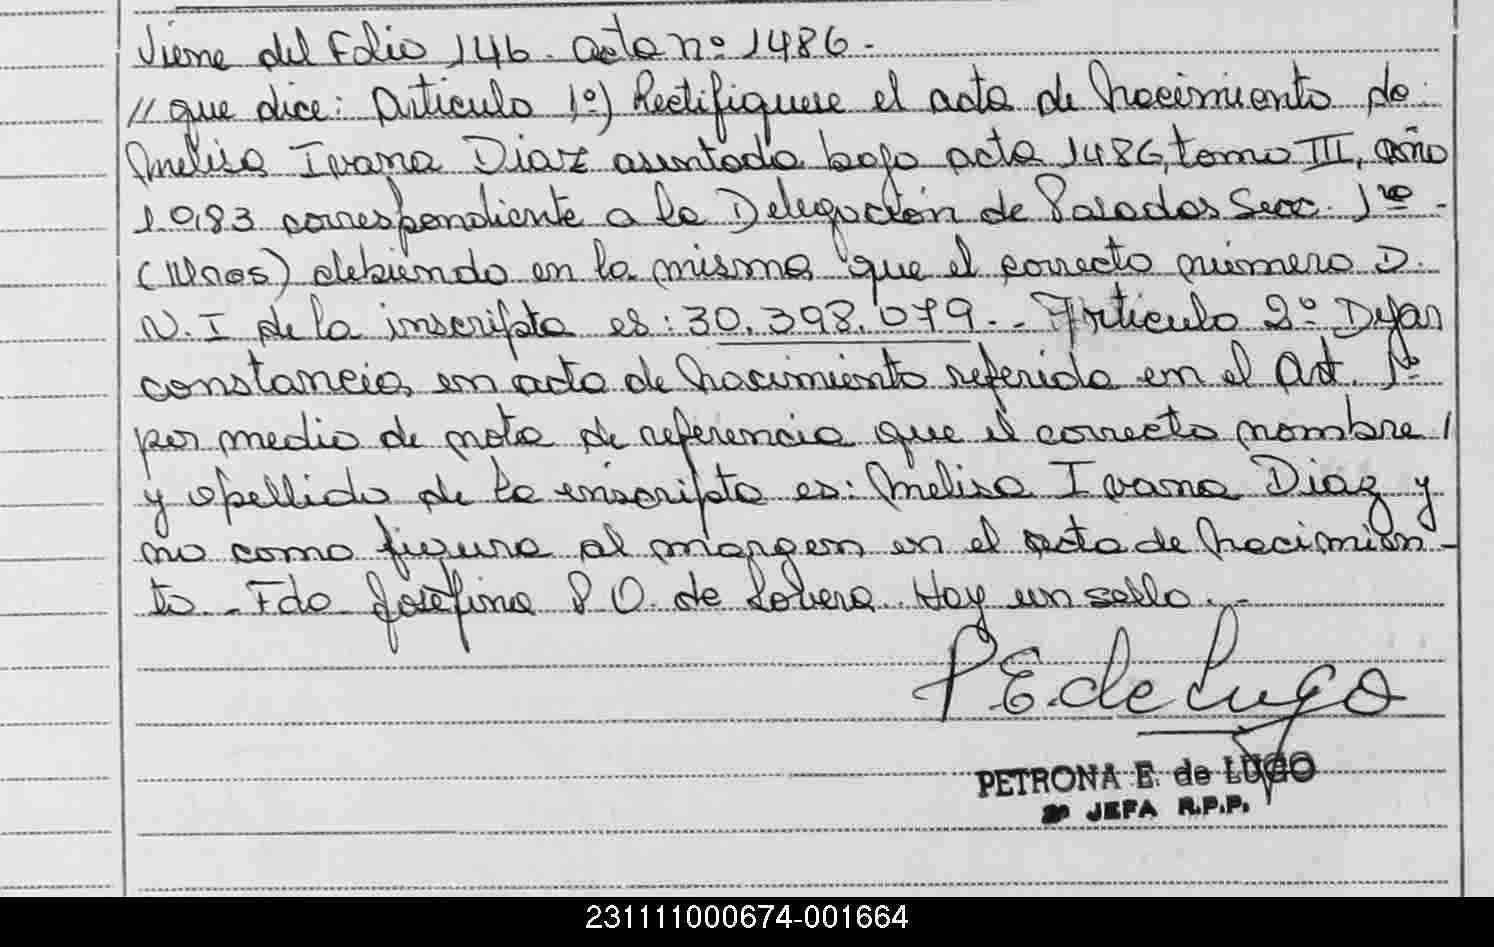 Viene del Folio 146. acta nº 1486.-
// que dice: Articulo 1º) Rectifiquese el acta de Nacimiento de
Melisa Ivana Diaz asentada bajo acta 1486, tomo III, año
1.983 correspondiente a la Delegación de Posadas Secc. 1ra.
debiendo en la misma que el correcto número D.
N.I de la inscripta es: 30.398.079.- Articulo 2º Dejar
constancia, en acta de Nacimiento referida en el Art. 1º
por medio de nota de referencia que el correcto nombre /
y apellido de la inscripta es: Melisa Ivana Diaz y
no como figura al margen en el acta de Nacimien-
to.- Fdo Josefina P O. de Lovera. Hay un sello.-
P E. de Lugo
PETRONA E. de LUGO
2º JEFA R.P.P.
231111000674-001664